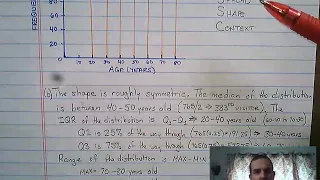 FREQUEN
80
60
40
20
10 20 30 40 50 60 70 80
AGE (YEARS)
SPREAD
SHAPE
CONTEXT
(b) The shape is roughly symmetric. The median of the distribution
is between 40-50 years old (765/2 ⇒ 383rd visitor). The
IQR of the distribution is Q3-Q1 ⇒ 20-40 years old
Q1 is 25% of the way through (765(0.25) = 191.25) ⇒ 30-40 years
Q3 is 75% of the way through (765(0.75)
Range of the distribution is MAX-MIN
MAX= 70-80 years old